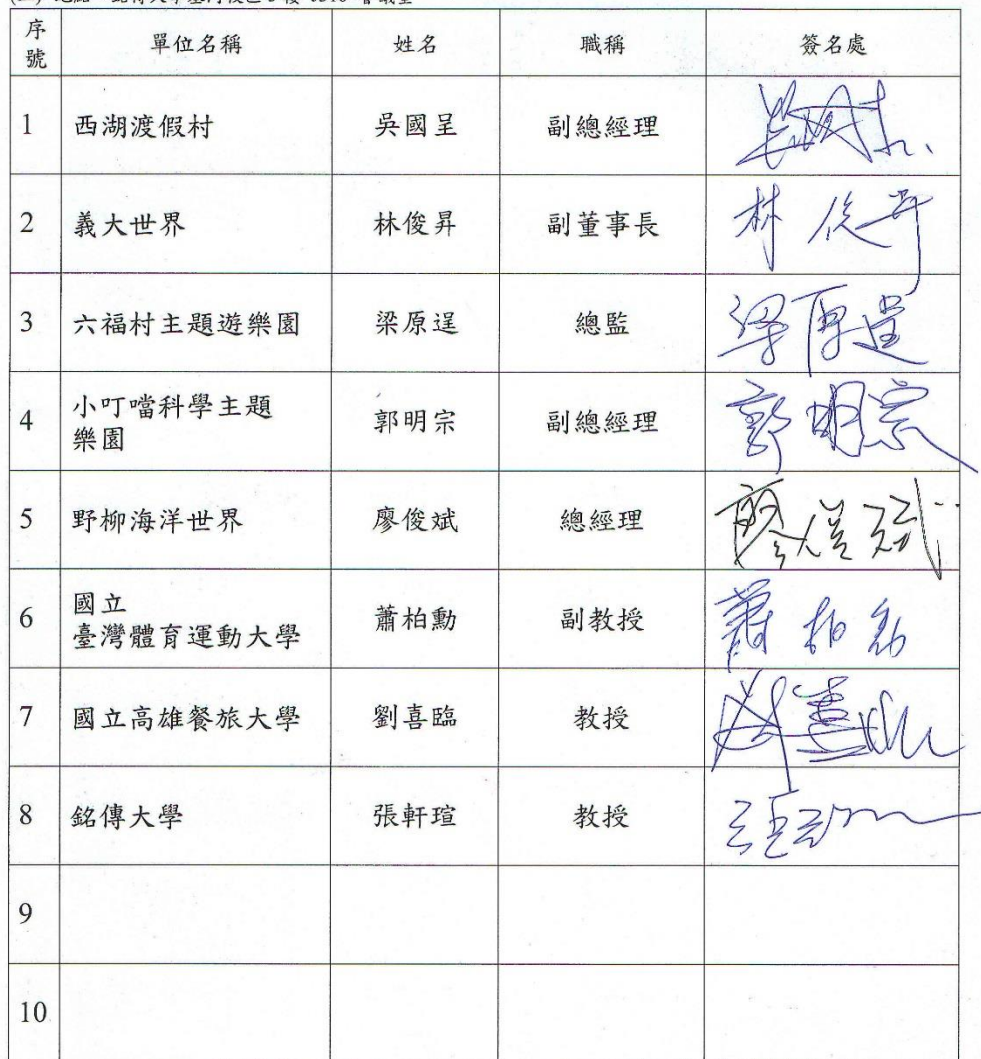 序號 單位名稱 姓名 職稱 簽名處
1 西湖渡假村 吳國呈 副總經理
2 義大世界 林俊昇 副董事長 林俊昇
3 六福村主題遊樂園 梁原逞 總監 梁原逞
4 小叮噹科學主題
樂園 郭明宗 副總經理 郭明宗
5 野柳海洋世界 廖俊斌 總經理 廖俊斌
6 國立
臺灣體育運動大學 蕭柏勳 副教授 蕭柏勳
7 國立高雄餐旅大學 劉喜臨 教授
8 銘傳大學 張軒瑄 教授
9
10